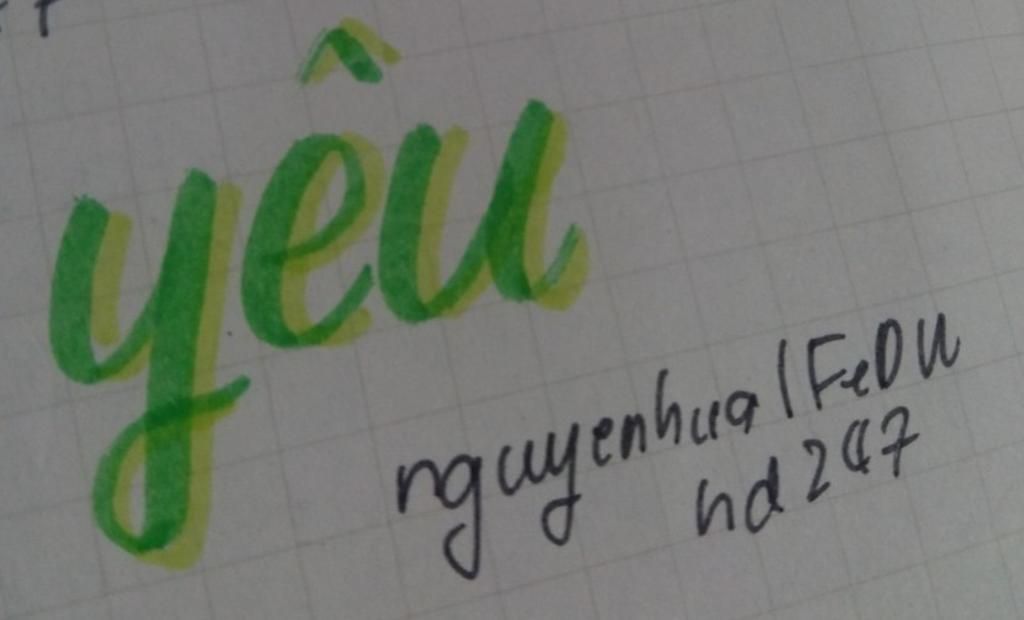 yêu
nguyenhua1FeDU
hd247